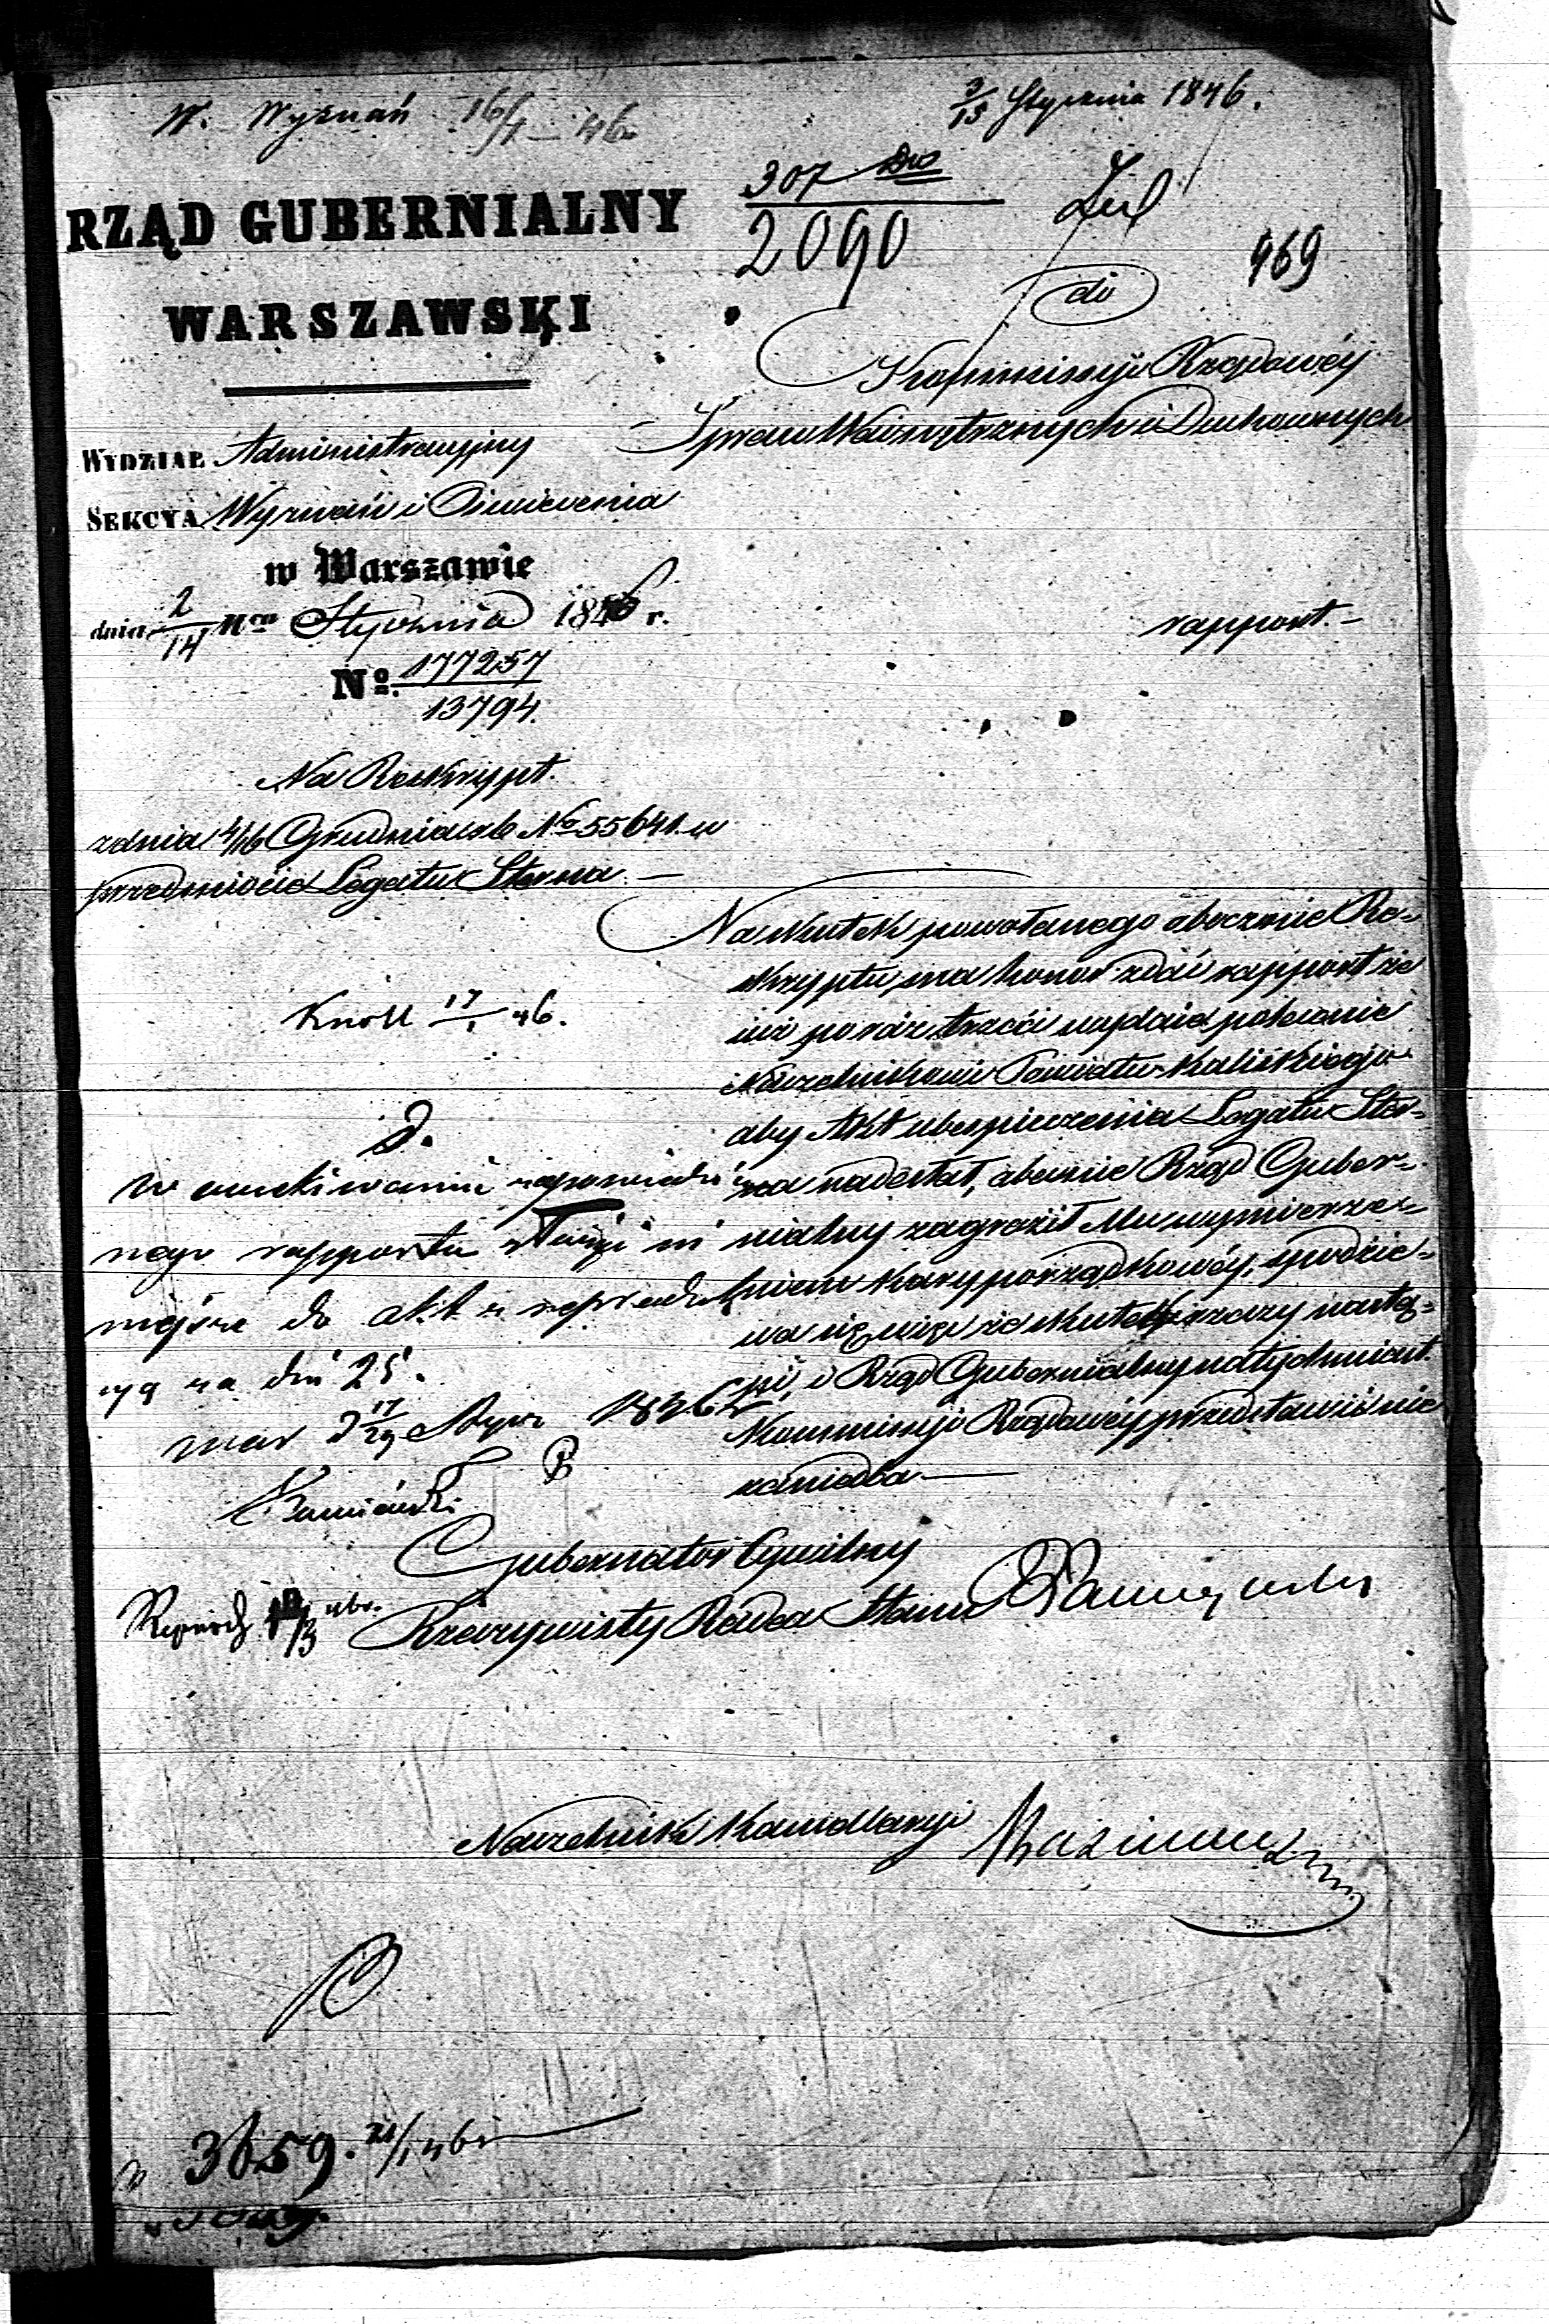 W. Wyznań 16/1 46
3/15 Stycznia 1846.
307
2090
969
RZĄD GUBERNIALNY
WARSZAWSKI
do
Kommissyi Rządowéy
Spraw Wewnętrznych i Duchownych
WYDZIAŁ Administracyjny
SEKCYA Wyznań i Oświecenia
w Warszawie
dnia 2/14 Mca Stycznia 1846 r.
No. 177257
13794.
rapport.
Na Reskrypt.
z dnia 4/16 Grudnia No 55641. w
przedmiocie Legatu Sterna
Na skutek powołanego obocznie Re-
skryptu, ma honor zdać rapport że
już po raz trzeci wydaje polecenie
Naczelnikowi Powiatu Kaliskiego
aby Akt ubespieczenia Legatu Ster-
na nadesłał, obecnie Rząd Guber-
nialny zagroził Mu wymierze-
niem kary porządkowéy, spodzie-
wa się więc że skutek rzeczy nastą-
pi, i Rząd Gubernialny natychmiast
Kommissyi Rządowéy przedstawić nie
zaniedba
17/1 46.
D.
w oczekiwaniu zapowiedzia
nego rapportu złożyć ni
niejsze do akt z reproduk
cyą na dni 25.
war D 17/29 Stycz 1846
Gubernator Cywilny
Rzeczywisty Radca Stanu
Naczelnik Kancellaryi
3659. 21/1 46